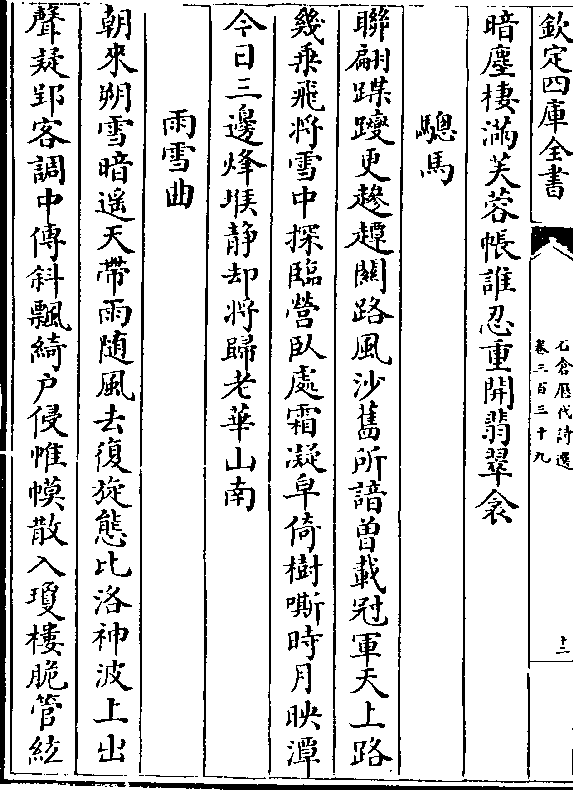 欽定四庫全書
石倉歷代詩選
卷三百三十九
十二
暗塵棲滿芙蓉帳誰忍重開翡翠衾
驄馬
聯翩蹀躞更趁趯關路風沙舊所諳曽載冠軍天上路
幾乘飛將雪中探臨營臥處霜凝皁倚樹嘶時月映潭
今日三邊烽堠静却將歸老華山南
雨雪曲
朝來朔雪暗遥天帶雨随風去復旋態比洛神波上出
聲疑郢客調中傳斜飄綺户侵帷幙散入瓊樓脆管絃